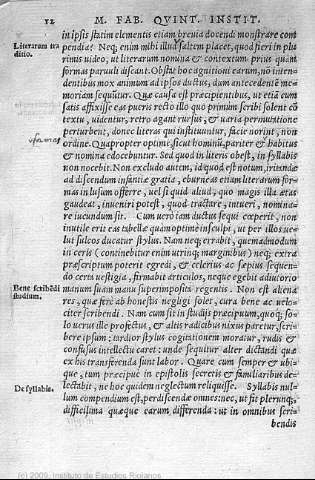 12 M. FAB. QVINT. INSTIT.
in ipsis statim elementis etiam breuia docendi monstrare com
Literarum tra
ditio.
pendia? Neq; enim mihi illud saltem placet, quod fieri in plu
rimis uideo, ut literarum nomina & contextum prius quàm
formas paruuli discant. Obstat hoc cognitioni earum, nō inten-
dentibus mox animum ad ipsos ductus, dum antecedentē me-
moriam sequūtur. Quæ causa est præcipientibus, ut etiā cum
satis affixisse eas pueris recto illo quo primùm scribi solent cō
textu, uidentur, retro agant rursus, & uaria permutatione
perturbent, donec literas qui instituuntur, facie norint, non
ordine. Quapropter optime, sicut hominū, pariter & habitus
& nomina edocebuntur. Sed quod in literis obest, in syllabis
non nocebit. Non excludo autem, id quod est notum, irritandæ
ad discendum infantiæ gratia, eburneas etiam literarum for-
mas in lusum offerre, uel si quid aliud, quo magis illa ætas
gaudeat, inueniri potest, quod tractare, intueri, nomina-
re iucundum sit. Cum uerò iam ductus sequi cœperit, non
inutile erit eas tabellæ quàm optime insculpi, ut per illos ue-
lut sulcos ducatur stylus. Nam neq; errabit, quemadmodum
in ceris (continebitur enim utrinq; marginibus) neq; extra
præscriptum poterit egredi, & celerius ac sæpius sequen-
do certa uestigia, firmabit articulos, neque egebit adiutorio
Bene scribēdi
studium.
manum suam manu superimposita regentis. Non est aliena
res, quæ ferè ab honestis negligi solet, cura bene ac uelo-
citer scribendi. Nam cum sit in studijs præcipuum, quoq; so-
lo uerus ille profectus, & altis radicibus nixus paretur, scri-
bere ipsum: tardior stylus cogitationem moratur, rudis &
confusus intellectu caret: unde sequitur alter dictandi quæ
ex his transferenda sunt labor. Quare cum semper & ubi-
que, tum præcipuè in epistolis secretis & familiaribus de-
De syllabis.
lectabit, ne hoc quidem neglectum reliquisse. Syllabis nul-
lum compendium est, perdiscendæ omnes: nec, ut fit plerunq;,
difficilima quæque earum differenda: ut in omnibus scri
bendis
(c) 2009, Instituto de Estudios Riojanos